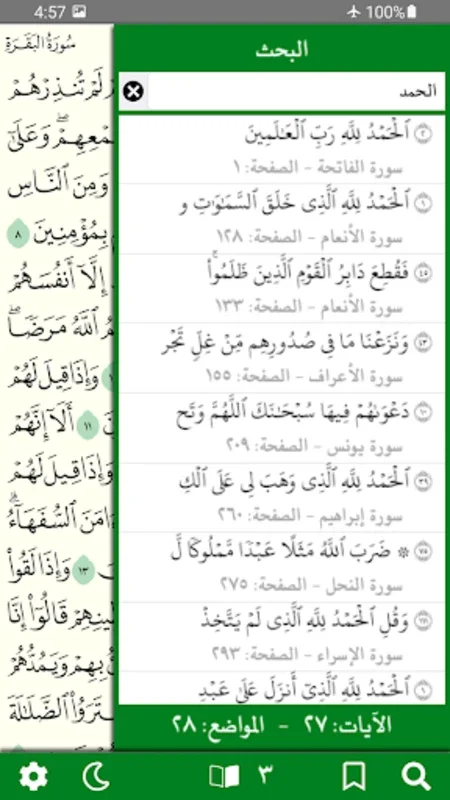 4:57
100%
سُورَةُ البَقَرَةِ
البحث
الحمد
٢ ٱلْحَمْدُ لِلَّهِ رَبِّ ٱلْعَـٰلَمِينَ
سورة الفاتحة - الصفحة: ١
١ ٱلْحَمْدُ لِلَّهِ ٱلَّذِى خَلَقَ ٱلسَّمَـٰوَٰتِ و
سورة الأنعام - الصفحة: ١٢٨
٤٥ فَقُطِعَ دَابِرُ ٱلْقَوْمِ ٱلَّذِينَ ظَلَمُوا۟ۚ
سورة الأنعام - الصفحة: ١٣٣
٤٣ وَنَزَعْنَا مَا فِى صُدُورِهِم مِّنْ غِلٍّ تَجْر
سورة الأعراف - الصفحة: ١٥٥
١٠ دَعْوَىٰهُمْ فِيهَا سُبْحَـٰنَكَ ٱللَّهُمَّ وَتَح
سورة يونس - الصفحة: ٢٠٩
٣٩ ٱلْحَمْدُ لِلَّهِ ٱلَّذِى وَهَبَ لِى عَلَى ٱلْكِ
سورة إبراهيم - الصفحة: ٢٦٠
٧٥ ۞ ضَرَبَ ٱللَّهُ مَثَلًا عَبْدًا مَّمْلُوكًا لَّ
سورة النحل - الصفحة: ٢٧٥
١١١ وَقُلِ ٱلْحَمْدُ لِلَّهِ ٱلَّذِى لَمْ يَتَّخِذْ
سورة الإسراء - الصفحة: ٢٩٣
١ ٱلْحَمْدُ لِلَّهِ ٱلَّذِىٓ أَنزَلَ عَلَىٰ عَبْدِ
الآيات: ٢٧ - المواضع: ٢٨
لَمْ تُنذِرْهُمْ
وَعَلَىٰٓ
وَمِنَ ٱلنَّاسِ
بِمُؤْمِنِينَ ٨
إِلَّآ أَنفُسَهُمْ
ٱللَّهُ مَرَضًا ۖ
وَإِذَا قِيلَ لَهُمْ
١١ أَلَآ إِنَّهُمْ
وَإِذَا قِيلَ لَهُمْ
ٱلسُّفَهَآءُ ۗ
١٣ وَإِذَا لَقُوا۟
قَالُوٓا۟ إِنَّا
بِهِمْ وَيَمُدُّهُمْ
ٱلضَّلَـٰلَةَ
٣